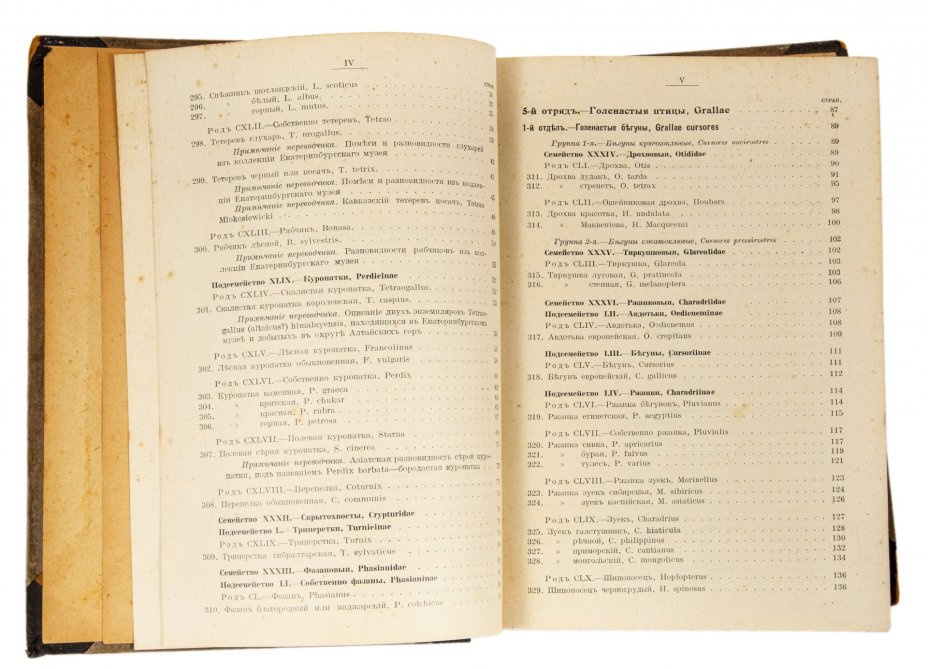 IV
СТРАН.
295. Снѣжникъ шотландскій, L. scoticus
296. » бѣлый, L. albus.
297. » горный, L. mutus.
Родъ CXLII.—Собственно тетеревъ, Tetrao
298. Тетеревъ глухарь, T. urogallus.
Примѣчаніе переводчика. Помѣси и разновидности глухарей
изъ коллекціи Екатеринбургскаго музея
299. Тетеревъ черный или косачъ, T. tetrix.
Примѣчаніе переводчика. Помѣси и разновидности изъ коллек-
ціи Екатеринбургскаго музея
Примѣчаніе переводчика. Кавказскій тетеревъ косачъ, Tetrao
Mlokosiewicki
Родъ CXLIII.—Рябчикъ, Bonasa.
300. Рябчикъ лѣсной, B. sylvestris.
Примѣчаніе переводчика. Разновидности рябчиковъ изъ кол-
лекціи Екатеринбургскаго музея
Подсемейство XLIX.—Куропатки, Perdicinae
Родъ CXLIV.—Скалистая куропатка, Tetraogallus.
301. Скалистая куропатка королевская, T. caspius.
Примѣчаніе переводчика. Описаніе двухъ экземпляровъ Tetrao-
gallus (altaicus?) himalayensis, находящихся въ Екатеринбургскомъ
музеѣ и добытыхъ въ округѣ Алтайскихъ горъ
Родъ CXLV.—Лѣсная куропатка, Francolinus
302. Лѣсная куропатка обыкновенная, F. vulgaris
Родъ CXLVI.—Собственно куропатка, Perdix
303. Куропатка каменная, P. graeca
304. » критская, P. chukar
305. » красная, P. rubra
306. » горная, P. petrosa
Родъ CXLVII.—Полевая куропатка, Starna
307. Полевая сѣрая куропатка, S. cinerea
Примѣчаніе переводчика. Азіатская разновидность сѣрой куро-
патки, подъ названіемъ Perdix barbata—бородастая куропатка
Родъ CXLVIII.—Перепелка, Coturnix
308. Перепелка обыкновенная, C. communis
Семейство XXXII.—Скрытохвосты, Crypturidae
Подсемейство L.—Триперстки, Turnicinae
Родъ CXLIX.—Триперстка, Turnix
309. Триперстка гибралтарская, T. sylvaticus
Семейство XXXIII.—Фазановыя, Phasianidae
Подсемейство LI.—Собственно фазаны, Phasianinae
Родъ CL.—Фазанъ, Phasianus
310. Фазанъ благородный или маджарскій, P. colchicus
V
СТРАН.
5-й отрядъ.—Голенастыя птицы, Grallae 87
1-й отдѣлъ.—Голенастые бѣгуны, Grallae cursores 89
Группа 1-я.—Бѣгуны крючкоклювые, Cursores uncirostres 89
Семейство XXXIV.—Дрохвовыя, Otididae 89
Родъ CLI.—Дрохва, Otis 90
311. Дрохва дудакъ, O. tarda 91
312. » стрепетъ, O. tetrax 95
Родъ CLII.—Ошейниковая дрохва, Houbara 97
313. Дрохва красотка, H. undulata 98
314. » Маквеніева, H. Macqueenii 100
Группа 2-я.—Бѣгуны сжатоклювые, Cursores pressirostres 102
Семейство XXXV.—Тиркушковыя, Glareolidae 102
Родъ CLIII.—Тиркушка, Glareola 103
315. Тиркушка луговая, G. pratincola 103
316. » степная, G. melanoptera 106
Семейство XXXVI.—Ржанковыя, Charadriidae 107
Подсемейство LII.—Авдотьки, Oedicneminae 108
Родъ CLIV.—Авдотька, Oedicnemus 108
317. Авдотька европейская, O. crepitans 109
Подсемейство LIII.—Бѣгуны, Cursoriinae 111
Родъ CLV.—Бѣгунъ, Cursorius 111
318. Бѣгунъ европейскій, C. gallicus 112
Подсемейство LIV.—Ржанки, Charadriinae 114
Родъ CLVI.—Ржанка бѣгунокъ, Pluvianus 114
319. Ржанка египетская, P. aegyptius 115
Родъ CLVII.—Собственно ржанка, Pluvialis 117
320. Ржанка сивка, P. apricarius 117
321. » бурая, P. fulvus 119
322. » тулесъ, P. varius 121
Родъ CLVIII.—Ржанка зуекъ, Morinellus 123
323. Ржанка зуекъ сибирская, M. sibiricus 124
324. » зуекъ каспійская, M. asiaticus 126
Родъ CLIX.—Зуекъ, Charadrius 127
325. Зуекъ галстушникъ, C. hiaticula 128
326. » рѣчной, C. philippinus 130
327. » приморскій, C. cantianus 132
328. » монгольскій, C. mongolicus 134
Родъ CLX.—Шипоносецъ, Hoplopterus 136
329. Шипоносецъ черногрудый, H. spinosus 136